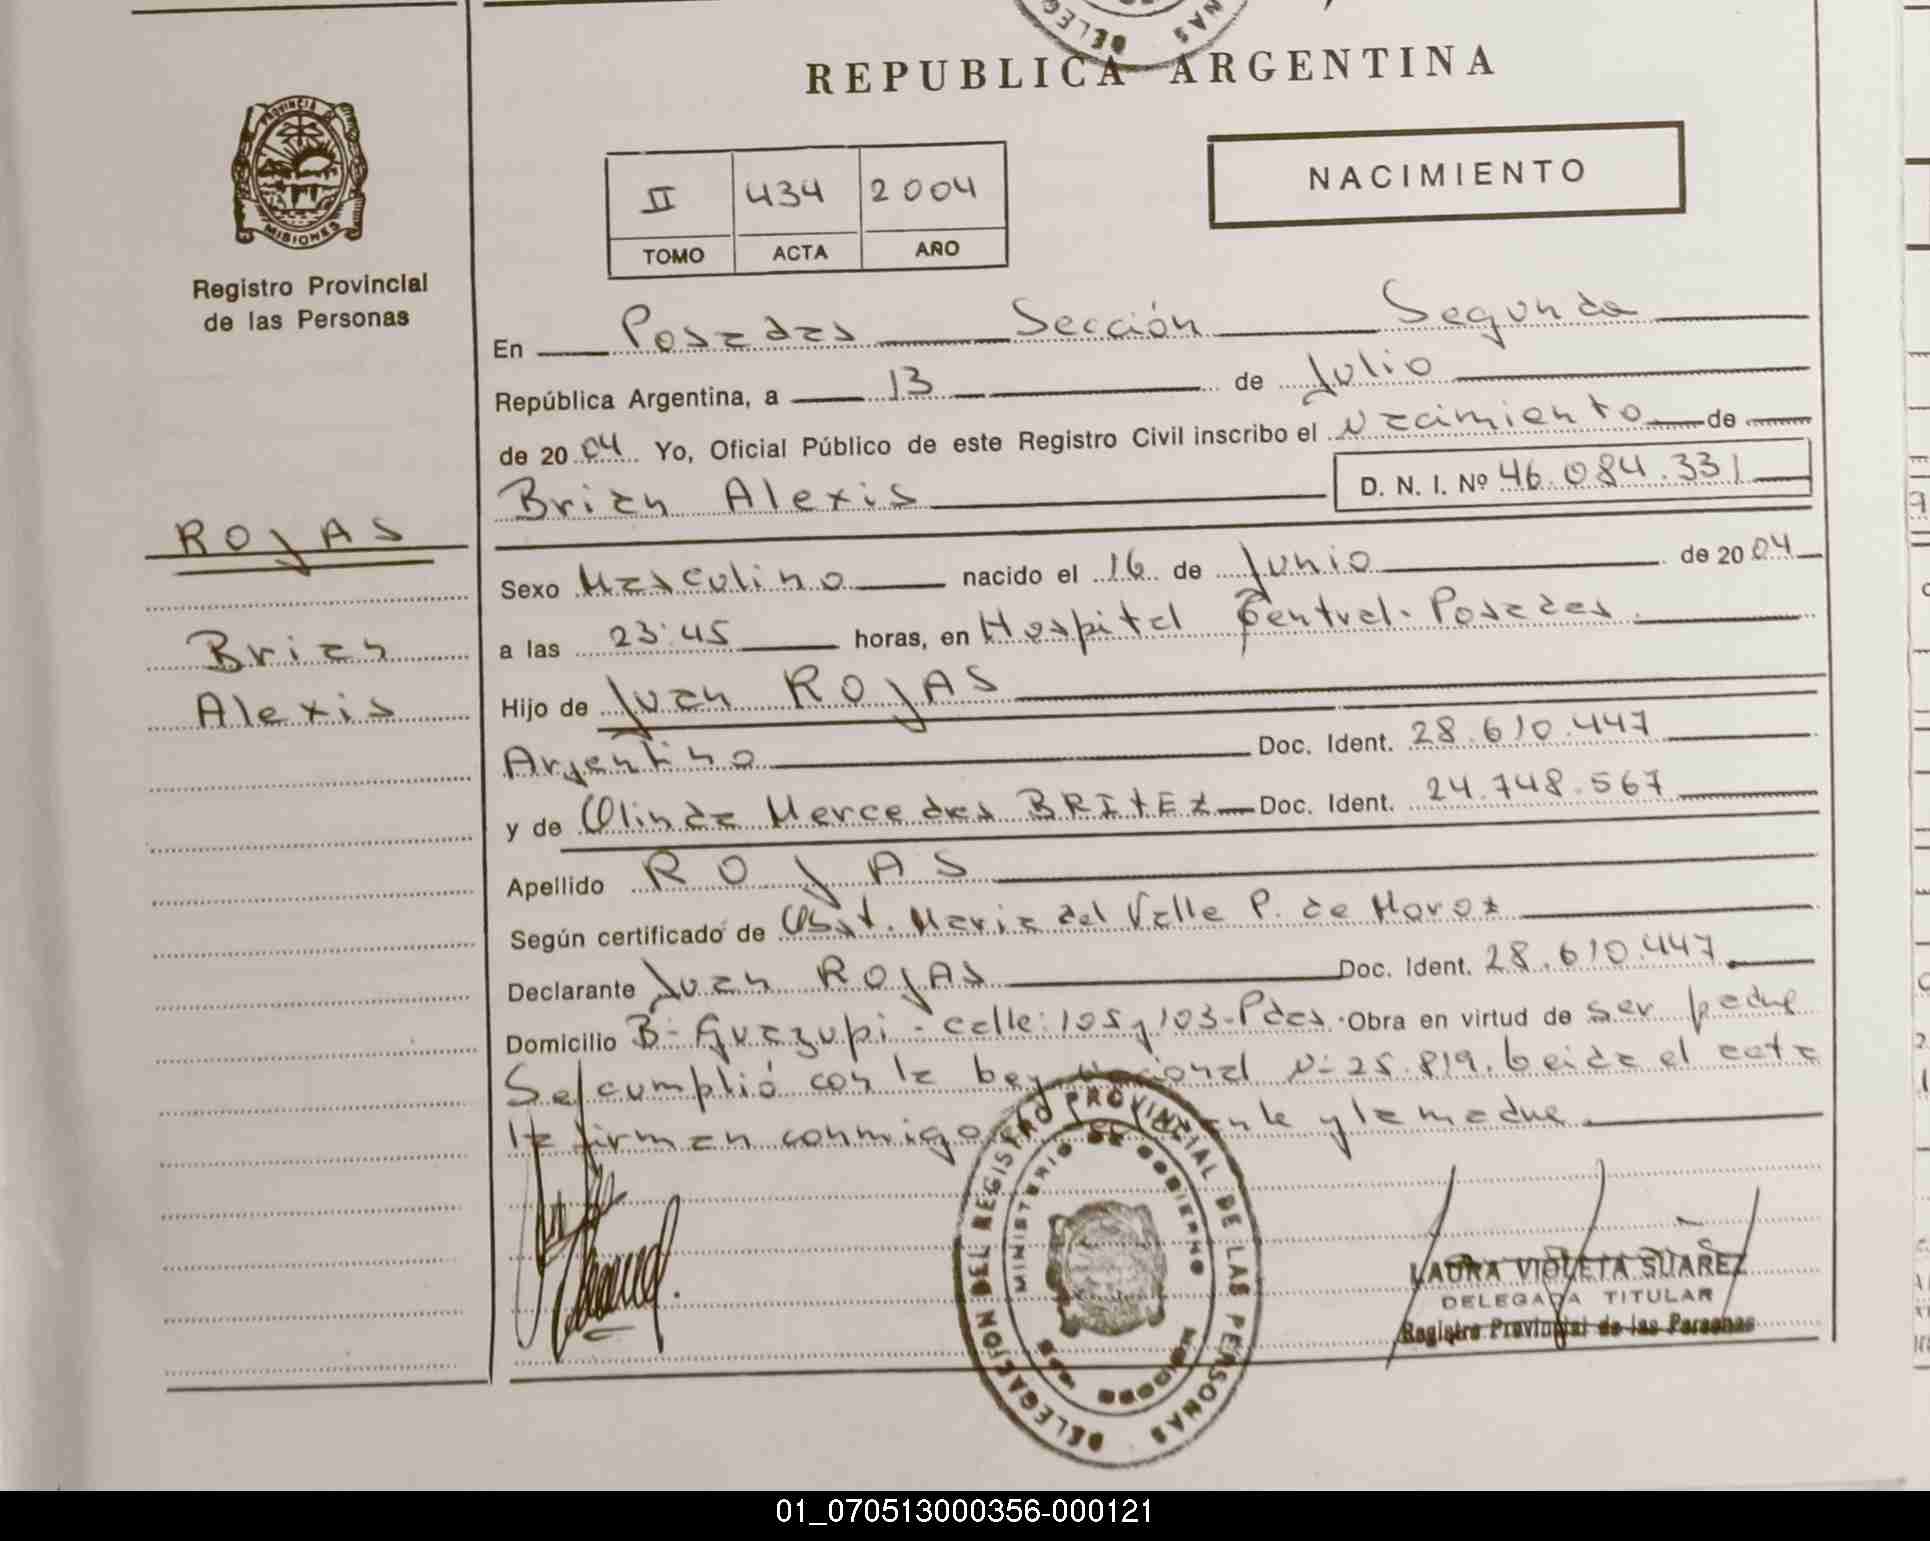 REPUBLICA ARGENTINA
PROVINCIA DE
MISIONES
Registro Provincial
de las Personas
II 434 2004
TOMO ACTA AÑO
NACIMIENTO
En Posadas Sección Segunda
República Argentina, a 13 de Julio
de 2004 Yo, Oficial Público de este Registro Civil inscribo el Nacimiento de
Brian Alexis D. N. I. Nº 46.084.331
ROJAS
Brian
Alexis
Sexo Masculino nacido el 16 de Junio de 2004
a las 23:45 horas, en Hospital Central. Posadas
Hijo de Juan ROJAS
Argentino Doc. Ident. 28.610.447
y de Olinda Mercedes BRITEZ Doc. Ident. 24.748.567
Apellido ROJAS
Según certificado de Obst. Maria del Valle P. de Moroz
Declarante Juan ROJAS Doc. Ident. 28.610.447
Domicilio Bº Guazupi - calle: 105 y 103 - Pdas. Obra en virtud de ser padre
Se cumplió con la Ley Nacional Nº 25.819. Leida el acta
la firman conmigo y la madre
DELEGACION DEL REGISTRO PROVINCIAL DE LAS PERSONAS
MINISTERIO DE GOBIERNO
LAURA VIOLETA SUAREZ
DELEGADA TITULAR
Registro Provincial de las Personas
01_070513000356-000121